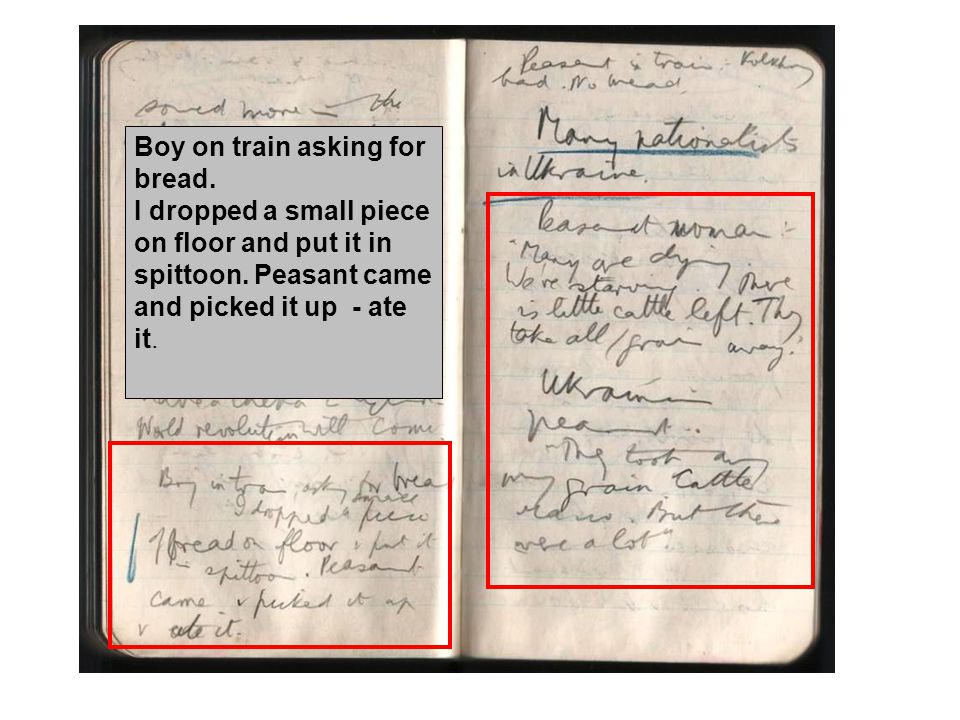 soned more – the
Boy on train asking for
bread.
I dropped a small piece
on floor and put it in
spittoon. Peasant came
and picked it up - ate
it.
World revolution will come.
Boy in train, asking for bread
I dropped a small piece
of bread on floor & put it
in spittoon. Peasant
came & picked it up
& ate it.
Peasant in train:- Kolkhoz
bad. No bread.
Many nationalists
in Ukraine.
Peasant woman:-
"Many are dying.
We're starving. There
is little cattle left. They
take all grain away."
Ukrainian
peasant..
"They took away
my grain. Cattle
But there
were a lot".